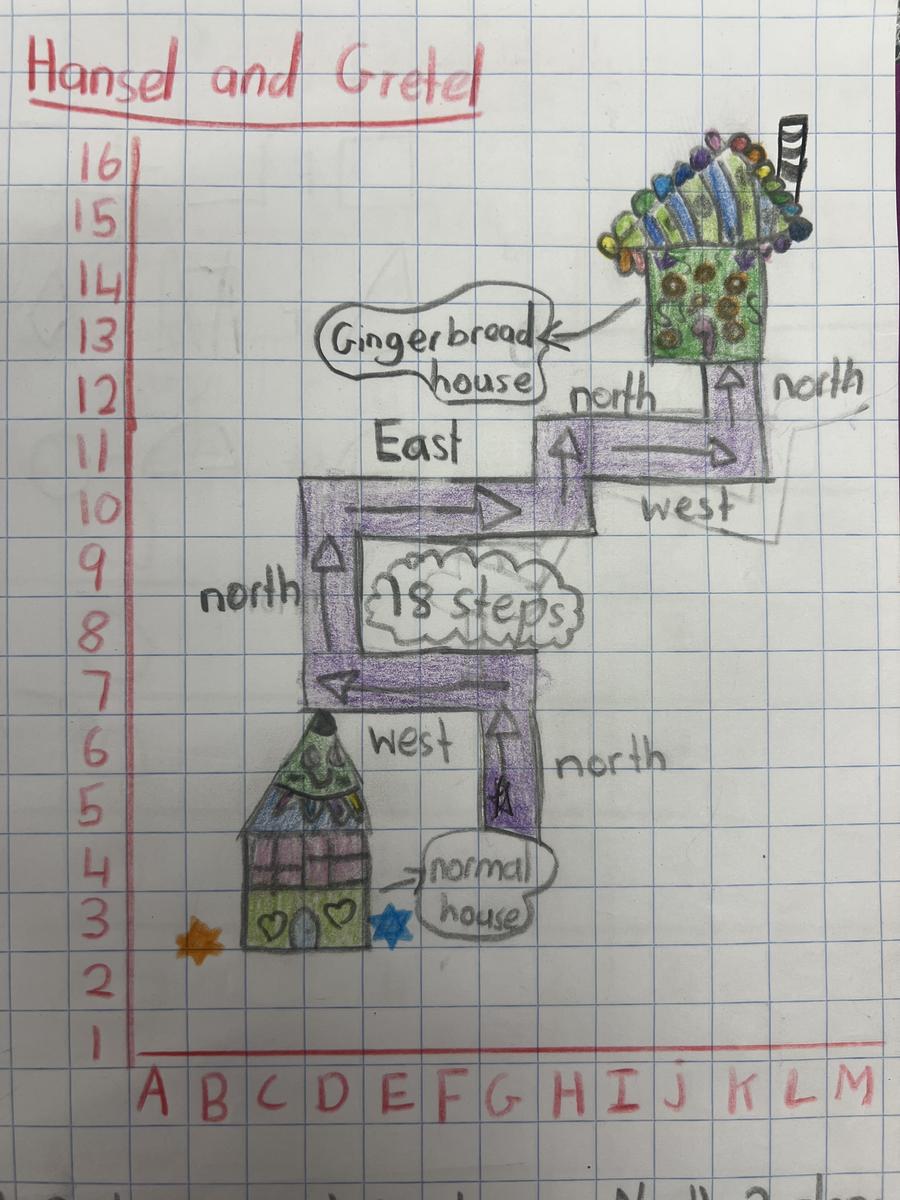 Hansel and Gretel
16
15
14
13
12
11
10
9
8
7
6
5
4
3
2
1
Gingerbread
house
north
north
East
west
north
18 steps
west
north
normal
house
A B C D E F G H I J K L M